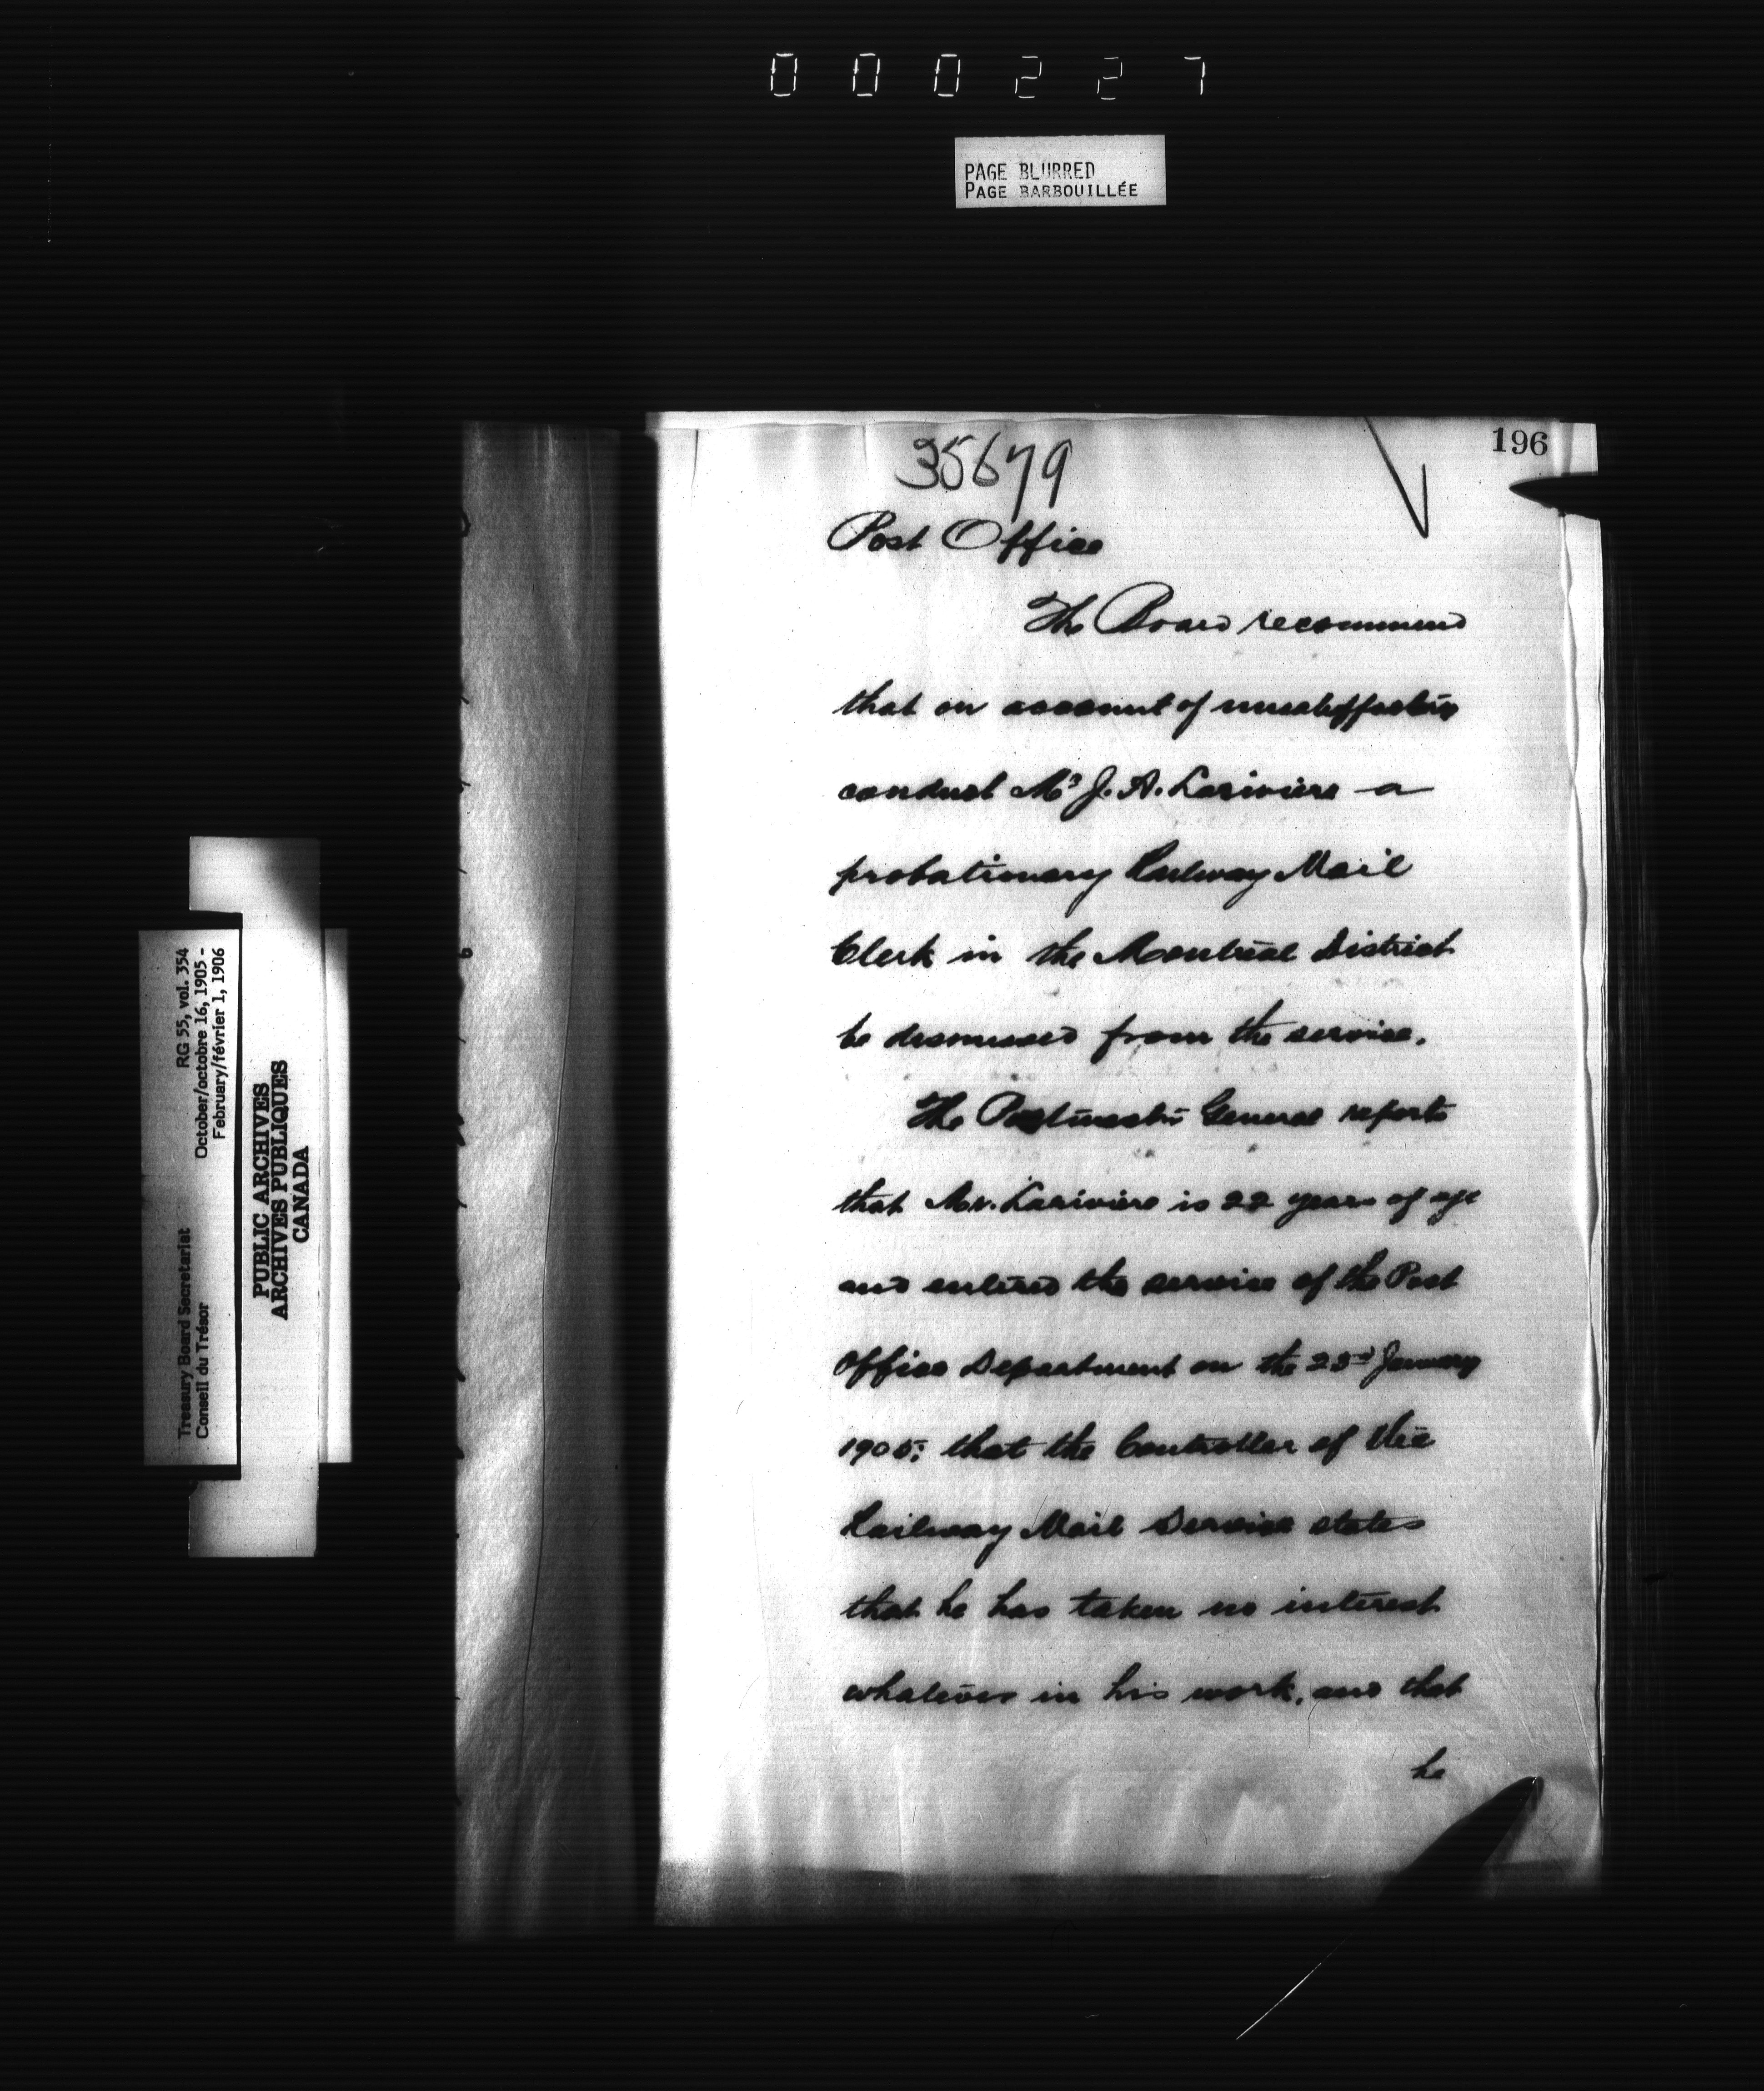 000227
PAGE BLURRED
PAGE BARBOUILLÉE
196
35679
Post Office
The Board recommend
that on account of unsatisfactory
conduct Mr J. A. Lariviere a
probationary Railway Mail
Clerk in the Montreal District
be dismissed from the service.
The Postmaster General reports
that Mr. Lariviere is 22 years of age
and entered the service of the Post
Office Department on the January
1905; that the Controller of the
Railway Mail Service states
that he has taken no interest
whatever in his work, and that
he
Treasury Board Secretariat RG 55, vol. 354
Conseil du Trésor October/octobre 16, 1905 -
February/février 1, 1906
PUBLIC ARCHIVES
ARCHIVES PUBLIQUES
CANADA